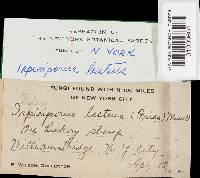 HERBARIUM OF
THE NEW YORK BOTANICAL GARDEN
FUNGI OF N. YORK
Irpiciporus lacteus
FUNGI FOUND WITHIN 100 MILES
OF NEW YORK CITY
Irpiciporus lacteus (Fries) Murrill
On hickory stump
Williamsbridge N Y City
P. WILSON, COLLECTOR